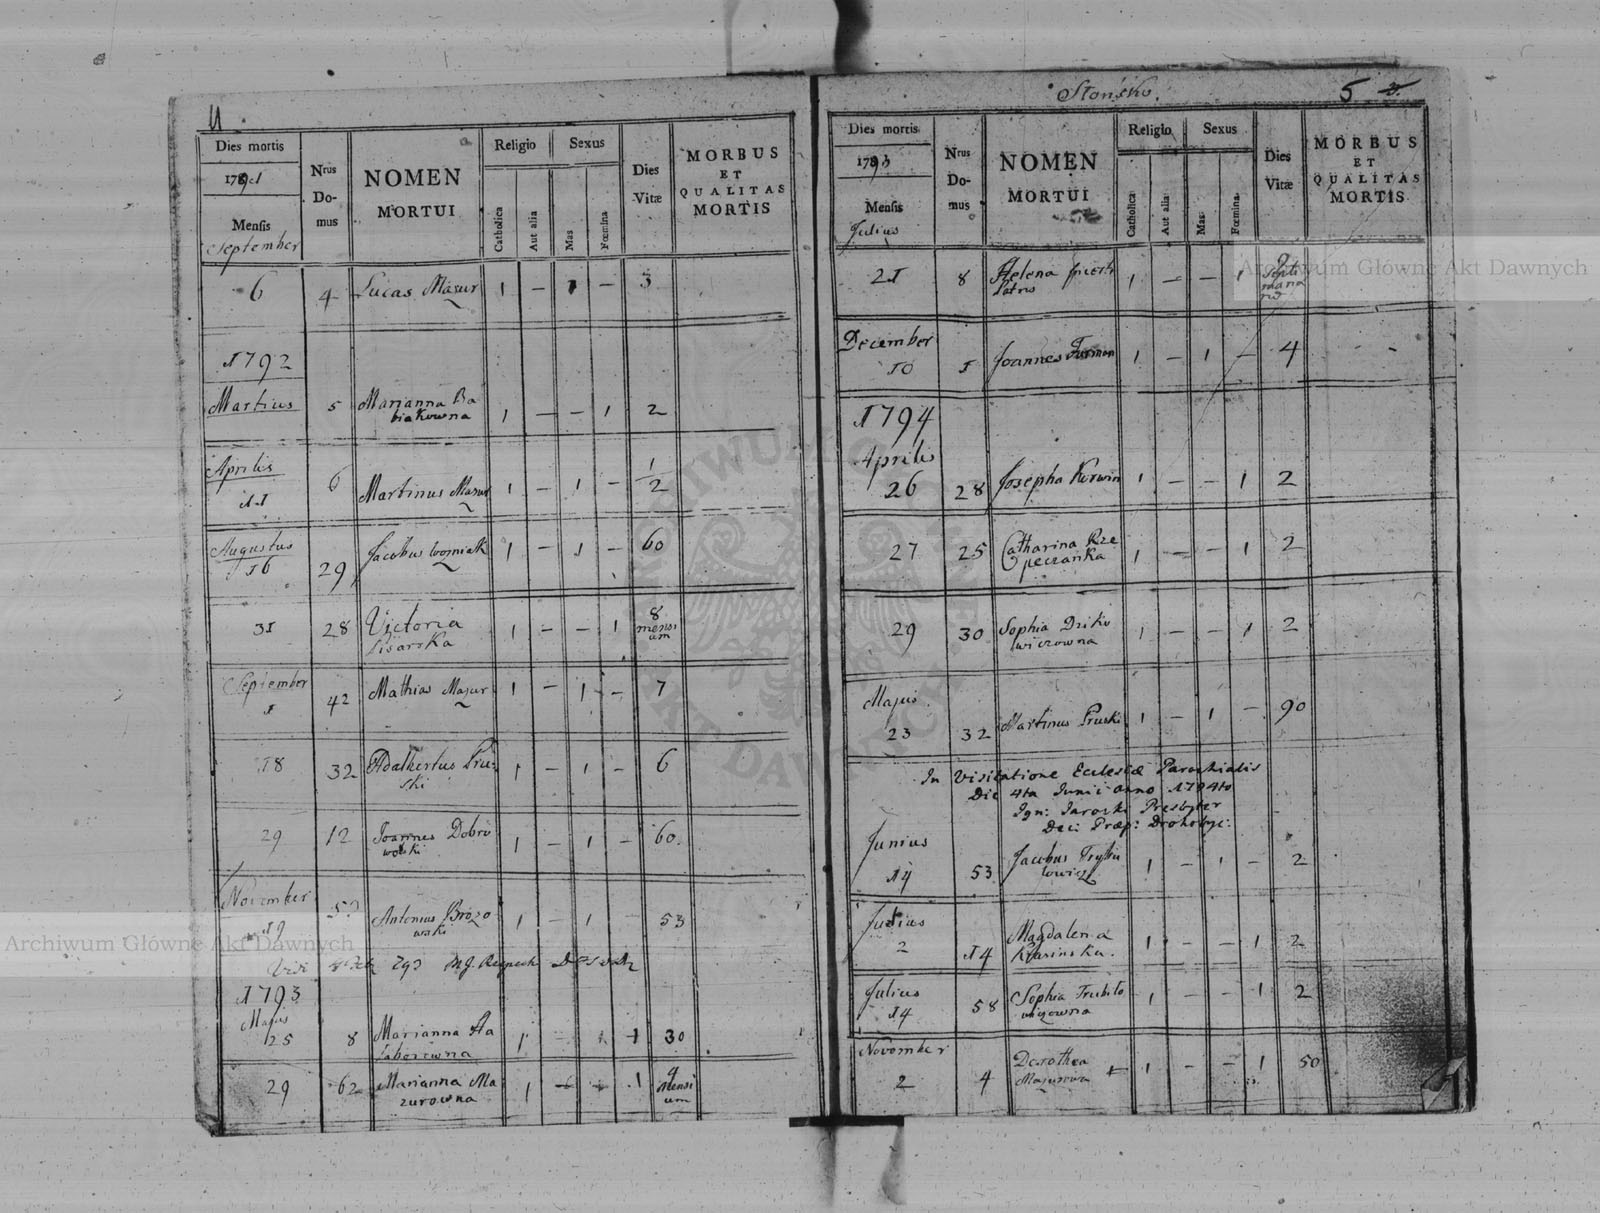 4
Dies mortis
1791
Mensis
September
Nrus
Do-
mus
NOMEN
MORTUI
Religio
Catholica
Aut alia
Sexus
Mas
Fœmina
Dies
Vitæ
MORBUS
ET
QUALITAS
MORTIS
6 4 Lucas Mazur 1 — 1 — 3
1792
Martius 5 Marianna Ba
biakowna 1 — — 1 2
Aprilis
11 6 Martinus Mazur 1 — 1 — 1/2
Augustus
16 29 Jacobus Wozniak 1 — 1 — 60
31 28 Victoria
Pisarska 1 — — 1 8
mensi
um
September
1 42 Mathias Mazur 1 — 1 — 7
18 32 Adalbertus Pru-
ski 1 — 1 — 6
29 12 Joannes Dobro
wolski 1 — 1 — 60
November
19 Antonius Brozo
wski 1 — 1 — 53
1793
Majus
25 8 Marianna Ha
laborowna 1 1 30
29 62 Marianna Ma
zurowna 1 1 4
Mensi
um
Stońsko.
5
Dies mortis
1793
Mensis
Julius
Nrus
Do-
mus
NOMEN
MORTUI
Religio
Catholica
Aut alia
Sexus
Mas
Fœmina
Dies
Vitæ
MORBUS
ET
QUALITAS
MORTIS
21 8 Helena
Patris 1 — — 1
December
10 1 Joannes Furman 1 — 1 — 4
1794
Aprilis
26 28 Josepha Kerwin 1 — — 1 2
27 25 Catharina Rze
peczanka 1 — — 1 2
29 30 Sophia Dziko
wiczowna 1 — — 1 2
Majus
23 32 Martinus Pruski 1 — 1 — 90
In Visitatione Ecclesiæ Parochialis
Die 4ta Junii anno 1794to
Ign: Jarocki Presbyter
Deci Præp: Drohobyc:
Junius
14 53 Jacobus 1 — 1 — 2
Julius
2 14 Magdalena
Klasinska. 1 — — 1 2
Julius
14 58 Sophia Trubito
wiczowna 1 — — 1 2
November
2 4 Dorothea
Mazurowa 1 — — 1 50
Archiwum Główne Akt Dawnych
Archiwum Główne Akt Dawnych
ARCHIWUM GŁÓWNE AKT DAWNYCH